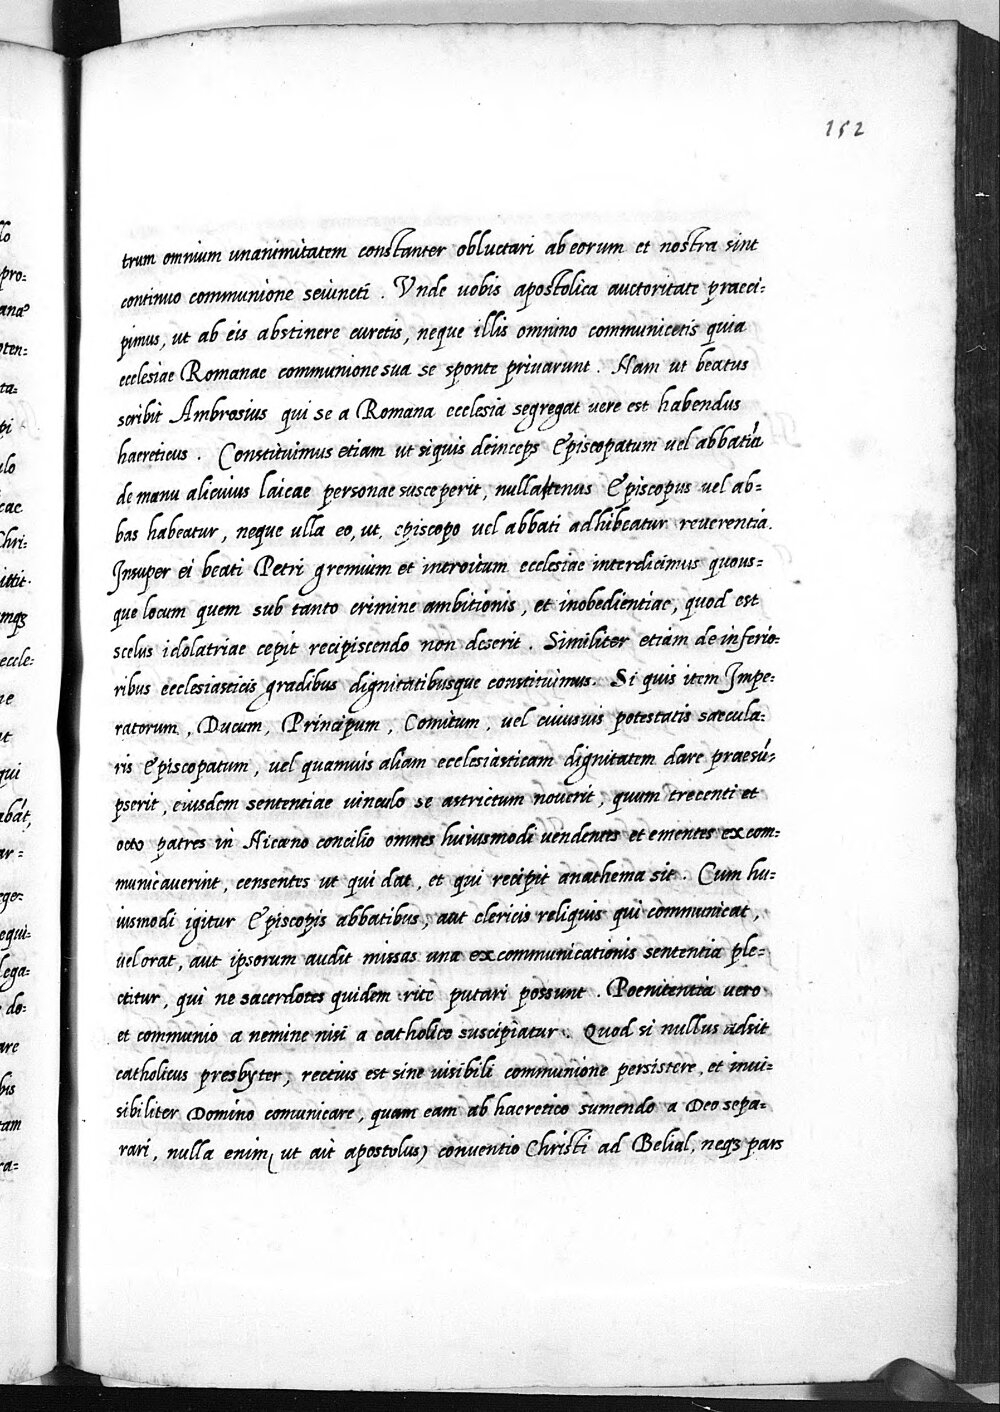 152
trum omnium unanimitatem constanter obluctari ab eorum et nostra sint
continuo communione seiuncti. Unde vobis apostolica auctoritate praeci=
pimus, ut ab eis abstinere curetis, neque illis omnino communicetis quia
ecclesiae Romanae communione sua se sponte privarunt. Nam ut beatus
scribit Ambrosius qui se a Romana ecclesia segregat vere est habendus
haereticus. Constituimus etiam ut siquis deinceps Episcopatum vel abbatiã
de manu alicuius laicae personae susceperit, nullatenus Episcopus vel ab=
bas habeatur, neque ulla eo, ut, episcopo vel abbati adhibeatur reverentia.
Insuper ei beati Petri gremium et introitum ecclesiae interdicimus quous=
que locum quem sub tanto crimine ambitionis, et inobedientiae, quod est
scelus idolatriae cepit recipiscendo non deserit. Similiter etiam de inferio=
ribus ecclesiasticis gradibus dignitatibusque constituimus. Si quis item Impe=
ratorum, Ducum, Principum, Comitum, vel cuiusvis potestatis saecula=
ris Episcopatum, vel quamvis aliam ecclesiasticam dignitatem dare praesũ=
pserit, eiusdem sententiae vinculo se astrictum noverit, quum trecenti et
octo patres in Nicaeno concilio omnes huiusmodi vendentes et ementes excom=
municaverint, censentes ut qui dat, et qui recipit anathema sit. Cum hu=
iusmodi igitur Episcopis abbatibus, aut clericis reliquis qui communicat,
vel orat, aut ipsorum audit missas una excommunicationis sententia ple=
ctitur, qui ne sacerdotes quidem rite putari possunt. Poenitentia vero
et communio a nemine nisi a catholico suscipiatur. Quod si nullus adsit
catholicus presbyter, rectius est sine visibili communione persistere, et invi=
sibiliter Domino comunicare, quam eam ab haeretico sumendo a Deo sepa=
rari, nulla enim (ut ait apostolus) conventio Christi ad Belial, neqȝ pars